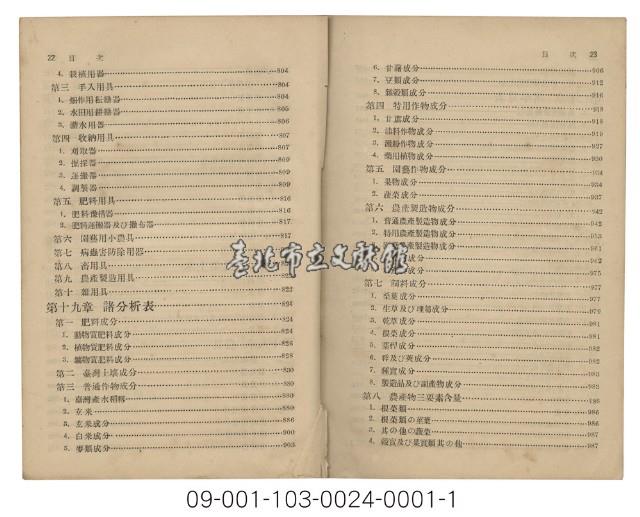 22 目次
4. 栽植用器 804
第三 手入用具 804
1. 畑作用耘耡器 804
2. 水田用耕耡器 805
3. 灌水用器 806
第四 收納用具 807
1. 刈取器 807
2. 掘採器
3. 運搬器
4. 調製器
第五 肥料用具 816
1. 肥料備蓄器 816
2. 肥料運搬器及び撒布器 817
第六 園藝用小農具
第七 病蟲害防除用器
第八 畜用具
第九 農產製造用具
第十 雜用具
第十九章 諸分析表 824
第一 肥料成分 824
1. 動物質肥料成分 824
2. 植物質肥料成分
3. 鑛物質肥料成分
第二 臺灣土壤成分 830
第三 普通作物成分
1. 臺灣產水稻稈
2. 玄米
3. 玄米成分
4. 白米成分
5. 麥類成分 903
目次 23
6. 甘藷成分 906
7. 豆類成分
8. 雜穀類成分 913
第四 特用作物成分 918
1. 甘蔗成分
2. 油料作物成分 919
3. 澱粉作物成分
4. 藥用植物成分
第五 園藝作物成分
1. 果物成分
2. 蔬菜成分
第六 農產製造物成分 942
1. 普通農產製造物成分
2. 特用農產製造物成分
農產製造物成分
成分
第七 飼料成分 977
1. 葉莖成分 977
2. 生草及び埋芻成分
3. 乾草成分
4. 根菜成分
5. 藁稈成分
6. 秤及び莢成分
7. 種實成分
8. 製造品及び副產物成分
第八 農產物三要素含量
1. 根菜類 986
2. 根菜類の莖葉 986
3. 其の他の蔬菜 987
4. 穀實及び果實類其の他 987
臺北市立文獻館
09-001-103-0024-0001-1